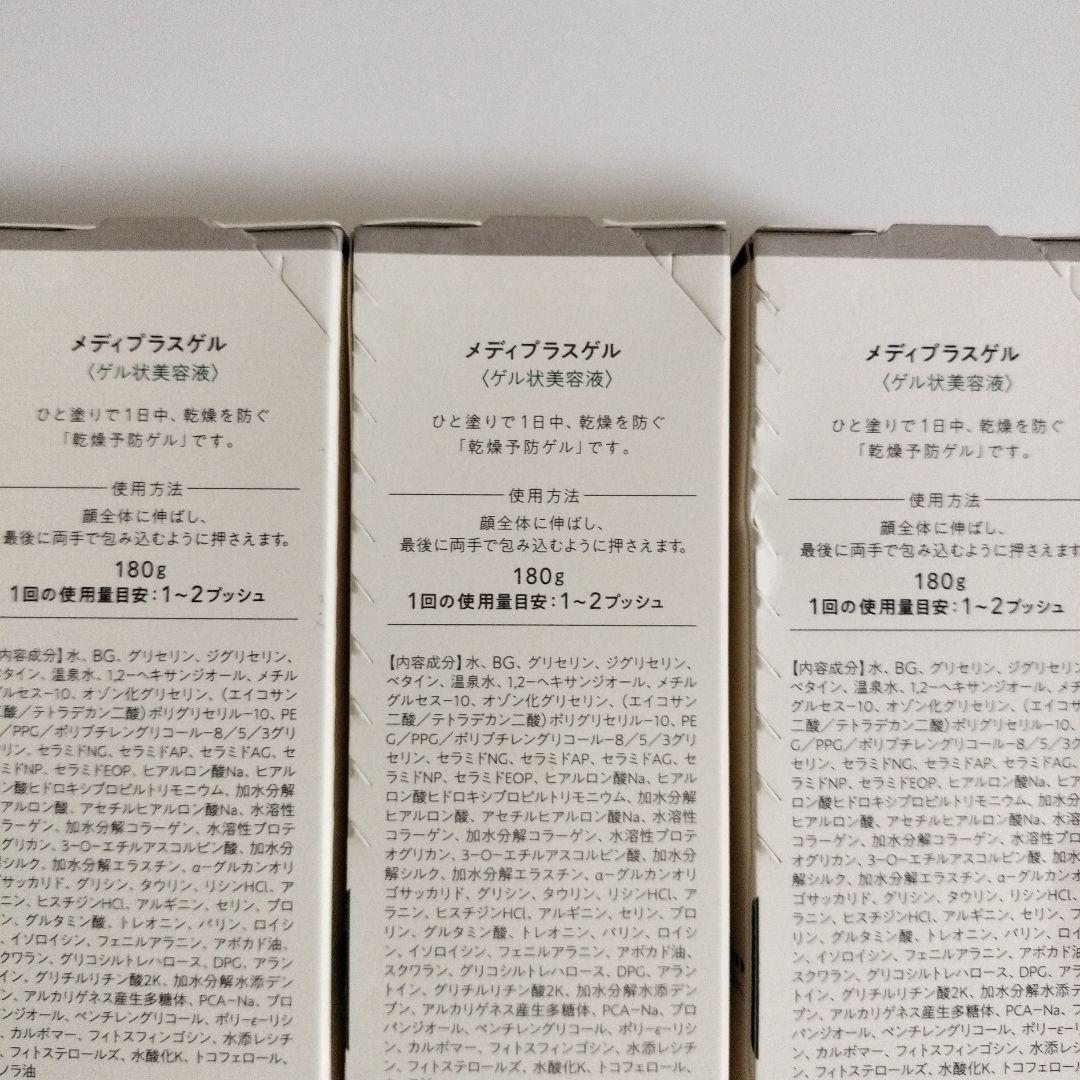 メディプラスゲル
〈ゲル状美容液〉
ひと塗りで1日中、乾燥を防ぐ
「乾燥予防ゲル」です。
使用方法
顔全体に伸ばし、
最後に両手で包み込むように押さえます。
180g
1回の使用量目安：1〜2プッシュ
内容成分】水、BG、グリセリン、ジグリセリン、
タイン、温泉水、1,2−ヘキサンジオール、メチル
グルセス−10、オゾン化グリセリン、（エイコサン
二酸／テトラデカン二酸）ポリグリセリル−10、PE
／PPG／ポリブチレングリコール−8／5／3グリ
リン、セラミドNG、セラミドAP、セラミドAG、セ
ミドNP、セラミドEOP、ヒアルロン酸Na、ヒアル
ン酸ヒドロキシプロピルトリモニウム、加水分解
アルロン酸、アセチルヒアルロン酸Na、水溶性
ラーゲン、加水分解コラーゲン、水溶性プロテ
グリカン、3−O−エチルアスコルビン酸、加水分
シルク、加水分解エラスチン、α−グルカンオリ
サッカリド、グリシン、タウリン、リシンHCl、ア
ニン、ヒスチジンHCl、アルギニン、セリン、プロ
ン、グルタミン酸、トレオニン、バリン、ロイシ
、イソロイシン、フェニルアラニン、アボカド油、
クワラン、グリコシルトレハロース、DPG、アラン
イン、グリチルリチン酸2K、加水分解水添デン
ン、アルカリゲネス産生多糖体、PCA−Na、プロ
ンジオール、ペンチレングリコール、ポリ−ε−リシ
、カルボマー、フィトスフィンゴシン、水添レシチ
、フィトステロールズ、水酸化K、トコフェロール、
ノラ油
メディプラスゲル
〈ゲル状美容液〉
ひと塗りで1日中、乾燥を防ぐ
「乾燥予防ゲル」です。
使用方法
顔全体に伸ばし、
最後に両手で包み込むように押さえます。
180g
1回の使用量目安：1〜2プッシュ
【内容成分】水、BG、グリセリン、ジグリセリン、
ベタイン、温泉水、1,2−ヘキサンジオール、メチル
グルセス−10、オゾン化グリセリン、（エイコサン
二酸／テトラデカン二酸）ポリグリセリル−10、PE
G／PPG／ポリブチレングリコール−8／5／3グリ
セリン、セラミドNG、セラミドAP、セラミドAG、セ
ラミドNP、セラミドEOP、ヒアルロン酸Na、ヒアル
ロン酸ヒドロキシプロピルトリモニウム、加水分解
ヒアルロン酸、アセチルヒアルロン酸Na、水溶性
コラーゲン、加水分解コラーゲン、水溶性プロテ
オグリカン、3−O−エチルアスコルビン酸、加水分
解シルク、加水分解エラスチン、α−グルカンオリ
ゴサッカリド、グリシン、タウリン、リシンHCl、ア
ラニン、ヒスチジンHCl、アルギニン、セリン、プロ
リン、グルタミン酸、トレオニン、バリン、ロイシ
ン、イソロイシン、フェニルアラニン、アボカド油、
スクワラン、グリコシルトレハロース、DPG、アラン
トイン、グリチルリチン酸2K、加水分解水添デン
プン、アルカリゲネス産生多糖体、PCA−Na、プロ
パンジオール、ペンチレングリコール、ポリ−ε−リシ
ン、カルボマー、フィトスフィンゴシン、水添レシチ
ン、フィトステロールズ、水酸化K、トコフェロール、
メディプラスゲル
〈ゲル状美容液〉
ひと塗りで1日中、乾燥を防ぐ
「乾燥予防ゲル」です。
使用方法
顔全体に伸ばし、
最後に両手で包み込むように押さえます
180g
1回の使用量目安：1〜2プッシュ
【内容成分】水、BG、グリセリン、ジグリセリン
ベタイン、温泉水、1,2−ヘキサンジオール、メチ
グルセス−10、オゾン化グリセリン、（エイコサ
二酸／テトラデカン二酸）ポリグリセリル−10、
G／PPG／ポリブチレングリコール−8／5／3グ
セリン、セラミドNG、セラミドAP、セラミドAG、
ラミドNP、セラミドEOP、ヒアルロン酸Na、ヒ
ロン酸ヒドロキシプロピルトリモニウム、加水分
ヒアルロン酸、アセチルヒアルロン酸Na、水溶
コラーゲン、加水分解コラーゲン、水溶性プロ
オグリカン、3−O−エチルアスコルビン酸、加水
解シルク、加水分解エラスチン、α−グルカンオ
ゴサッカリド、グリシン、タウリン、リシンHCl、
ラニン、ヒスチジンHCl、アルギニン、セリン、
リン、グルタミン酸、トレオニン、バリン、ロイ
ン、イソロイシン、フェニルアラニン、アボカド
スクワラン、グリコシルトレハロース、DPG、ア
トイン、グリチルリチン酸2K、加水分解水添デ
プン、アルカリゲネス産生多糖体、PCA−Na、
パンジオール、ペンチレングリコール、ポリ−ε−
ン、カルボマー、フィトスフィンゴシン、水添レ
ン、フィトステロールズ、水酸化K、トコフェロー